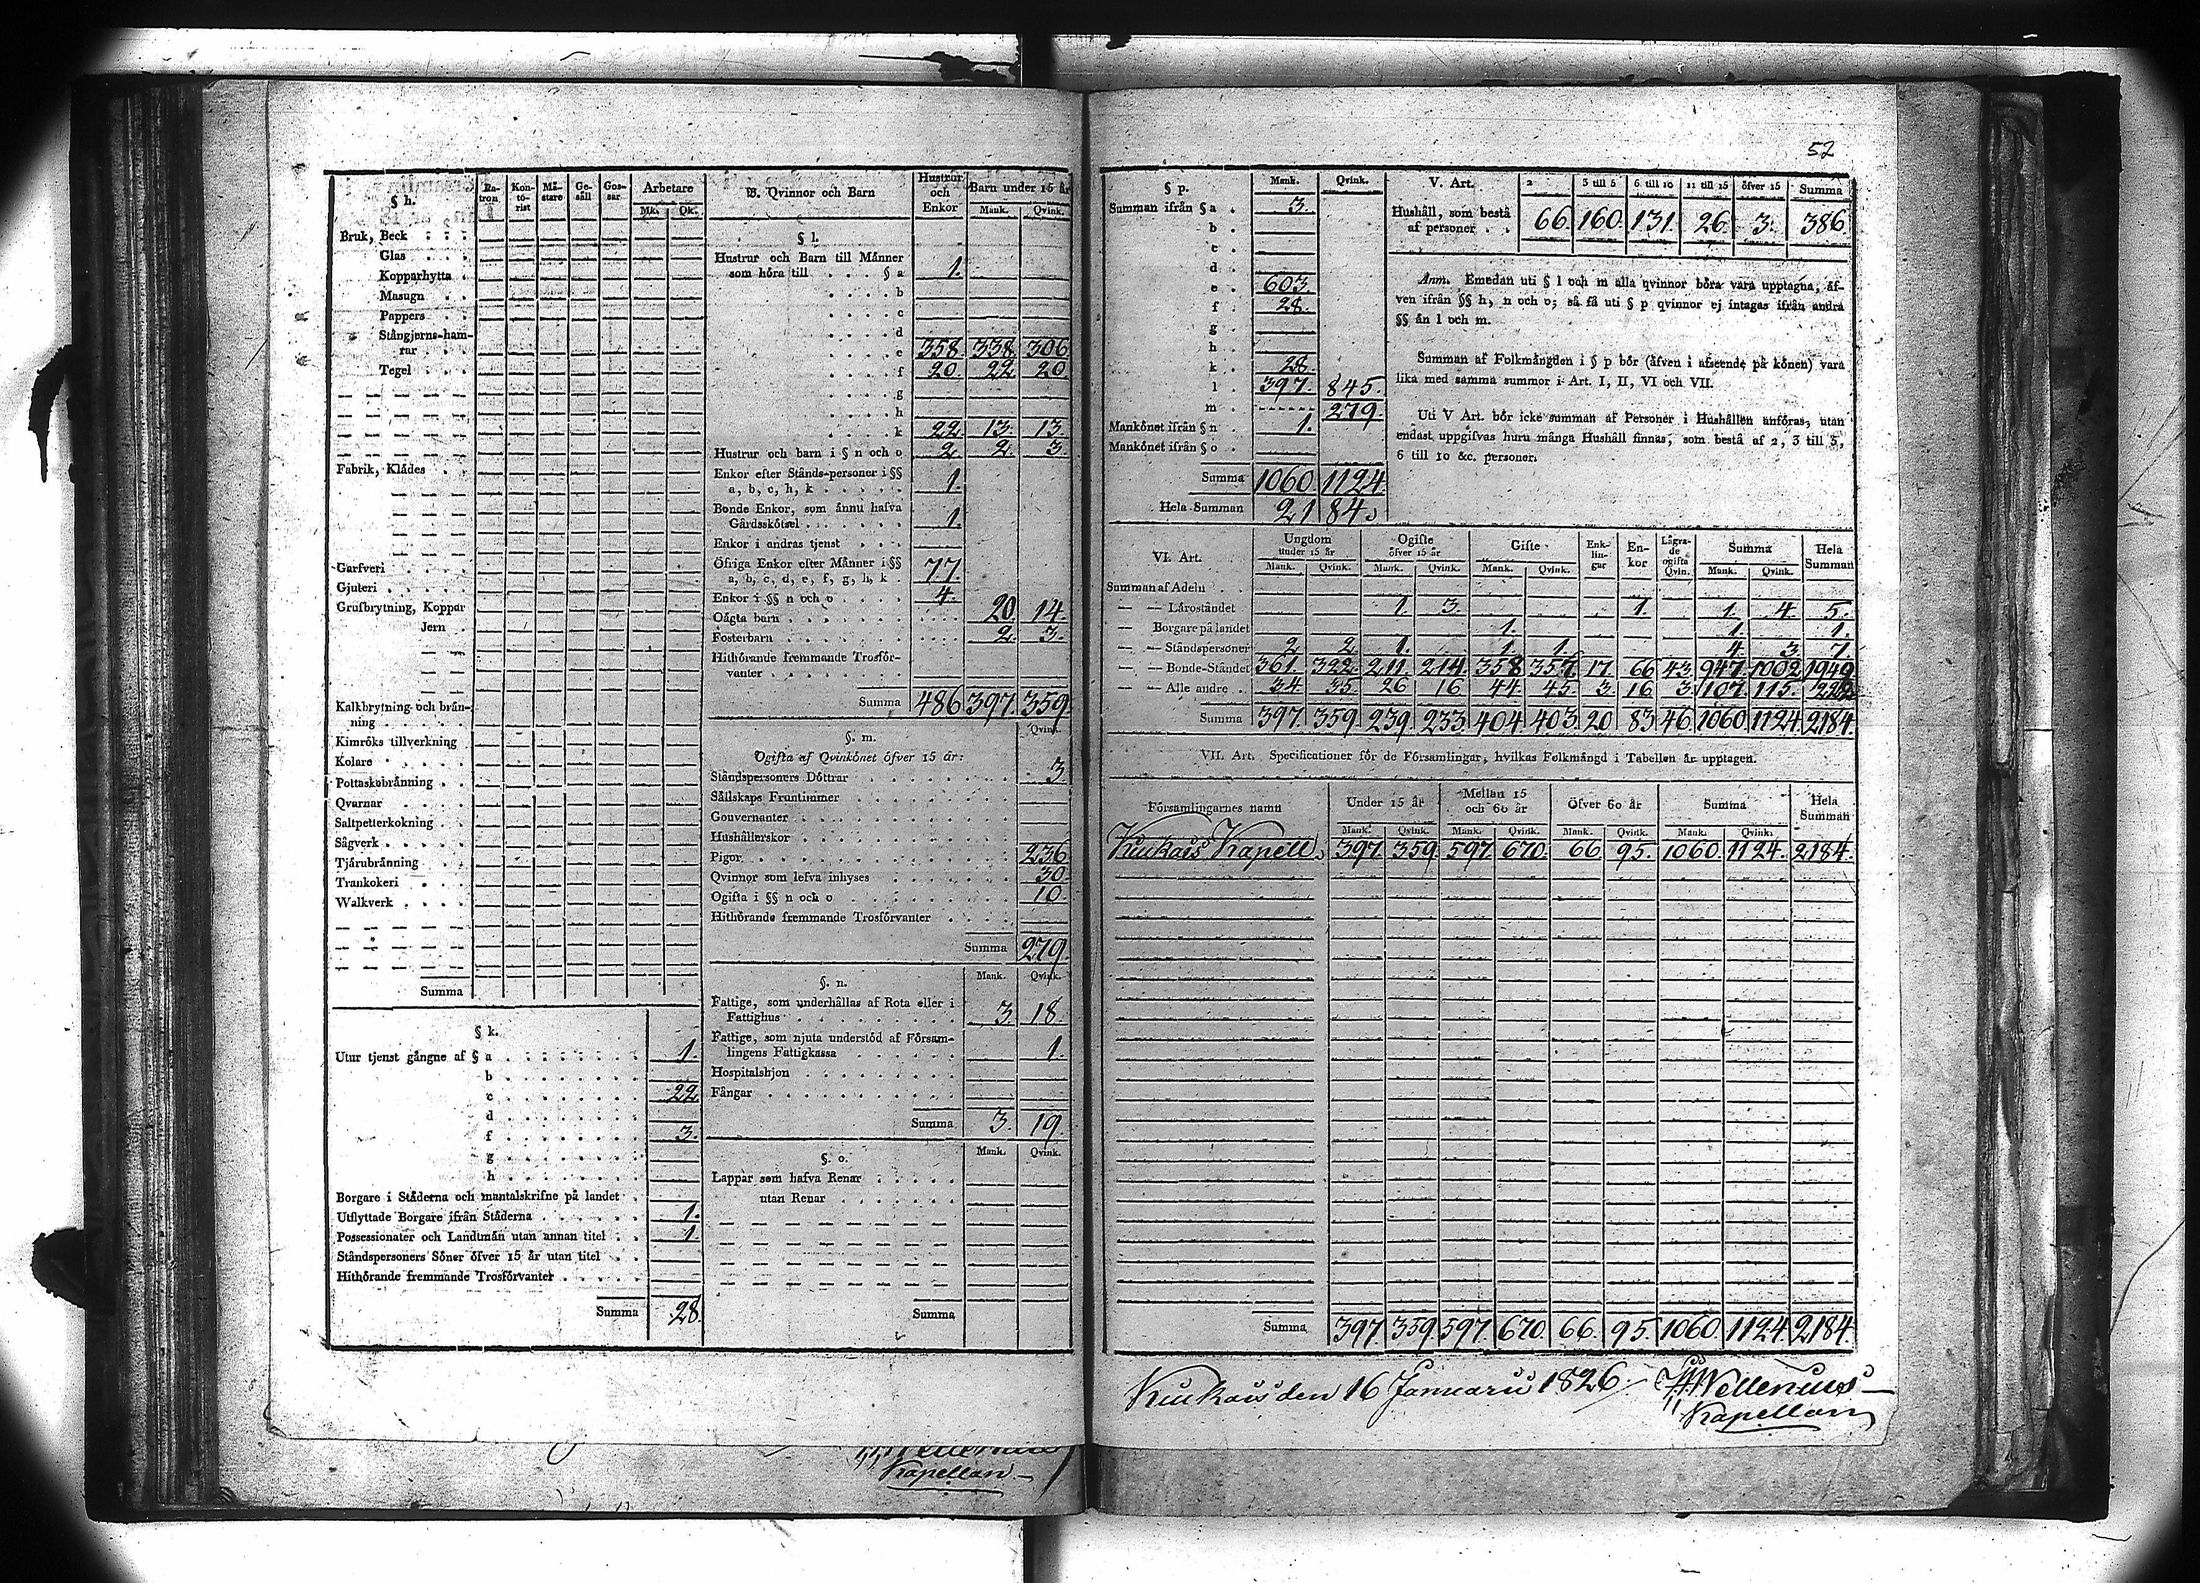 52
§ h.
Pa-tron. Kon-to-rist Mä-stare Ge-säll Gos-sar Arbetare
Mk. Qk.
Bruk, Beck
Glas
Kopparhytta
Masugn
Pappers
Stångjerns-ham-
rar
Tegel
Fabrik, Klädes
Garfveri
Gjuteri
Grufbrytning, Koppar
Jern
Kalkbrytning och brän-
ning
Kimröks tillverkning
Kolare
Pottaskebränning
Qvarnar
Saltpetterkokning
Sågverk
Tjärubränning
Trankokeri
Walkverk
Summa
§ k.
Utur tjenst gångne af § a 1.
b
c 22
d
f 3.
g
h
Borgare i Städerna och mantalskrifne på landet
Utflyttade Borgare ifrån Städerna 1.
Possessionater och Landtmän utan annan titel 1
Ståndspersoners Söner öfver 15 år utan titel
Hithörande fremmande Trosförvanter
Summa 28.
B. Qvinnor och Barn Hustrur och Enkor Barn under 15 år
Mank. Qvink.
§ l.
Hustrur och Barn till Männer
som höra till § a 1.
b
c
d
e 358. 338. 306
f 20. 22. 20.
g
h
k 22. 13. 13.
Hustrur och barn i § n och o 2. 2. 3.
Enkor efter Stånds-personer i §§
a, b, c, h, k 1.
Bonde Enkor, som ännu hafva
Gårdsskötsel 1.
Enkor i andras tjenst
Öfriga Enkor efter Männer i §§
a, b, c, d, e, f, g, h, k 77.
Enkor i §§ n och o 4.
Oägta barn 20. 14.
Fosterbarn 2. 3.
Hithörande fremmande Trosför-
vanter
Summa 486 397. 359.
§. m. Qvink.
Ogifta af Qvinkönet öfver 15 år:
Ståndspersoners Döttrar 3.
Sällskaps Fruntimmer
Gouvernanter
Hushållerskor
Pigor 236.
Qvinnor som lefva inhyses 30.
Ogifta i §§ n och o 10.
Hithörande fremmande Trosförvanter
Summa 279.
§. n. Mank. Qvink.
Fattige, som underhållas af Rota eller i
Fattighus 3. 18.
Fattige, som njuta understöd af Försam-
lingens Fattigkassa 1.
Hospitalshjon
Fångar
Summa 3. 19.
§. o. Mank. Qvink.
Lappar som hafva Renar
utan Renar
Summa
Kapellan
§ p. Mank. Qvink.
Summan ifrån § a 3.
b
c
d
e 603.
f 28.
g
h
k 28.
l 397. 845.
m 279.
Mankönet ifrån § n 1.
Mankönet ifrån § o
Summa 1060. 1124.
Hela Summan 2184.
V. Art. 2 3 till 5 6 till 10 11 till 15 öfver 15 Summa
Hushåll, som bestå
af personer 66. 160. 131. 26. 3. 386.
Anm. Emedan uti § l och m alla qvinnor böra vara upptagna, äf-
ven ifrån §§ h, n och o; så få uti § p qvinnor ej intagas ifrån andra
§§ än l och m.
Summan af Folkmängden i § p bör (äfven i afseende på könen) vara
lika med samma summor i Art. I, II, VI och VII.
Uti V Art. bör icke summan af Personer i Hushållen anföras, utan
endast uppgifvas huru många Hushåll finnas, som bestå af 2, 3 till 5,
6 till 10 &c. personer.
VI. Art. Ungdom under 15 år Ogifte öfver 15 år Gifte Enk-lin-gar En-kor Lägra-de ogifta Qvin. Summa Hela Summan
Mank. Qvink. Mank. Qvink. Mank. Qvink. Mank. Qvink.
Summan af Adeln
— — Läroståndet 1. 3. 1. 1. 4. 5.
— Borgare på landet 1. 1. 1.
— — Ståndspersoner 2 2. 1. 1. 1. 4. 3. 7.
— — Bonde-Ståndet 361. 322. 211. 214. 358 357. 17. 66. 43. 947. 1002. 1949.
— — Alle andre 34. 35. 26 16 44. 45. 3. 16 3. 107. 115.
Summa 397. 359. 239. 233. 404. 403. 20 83. 46. 1060 1124. 2184.
VII. Art. Specificationer för de Församlingar, hvilkas Folkmängd i Tabellen är upptagen.
Församlingarnes namn Under 15 år Mellan 15 och 60 år Öfver 60 år Summa Hela Summan
Mank. Qvink. Mank. Qvink. Mank. Qvink. Mank. Qvink.
Kiukais Kapell. 397. 359. 597. 670. 66 95. 1060. 1124. 2184.
Summa 397. 359. 597. 670. 66. 95. 1060. 1124. 2184.
Kiukais den 16 Januarii 1826. Wellenius
Kapellan